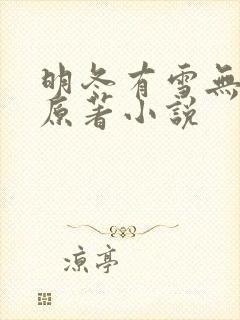 明冬有雪無
原著小說
涼亭